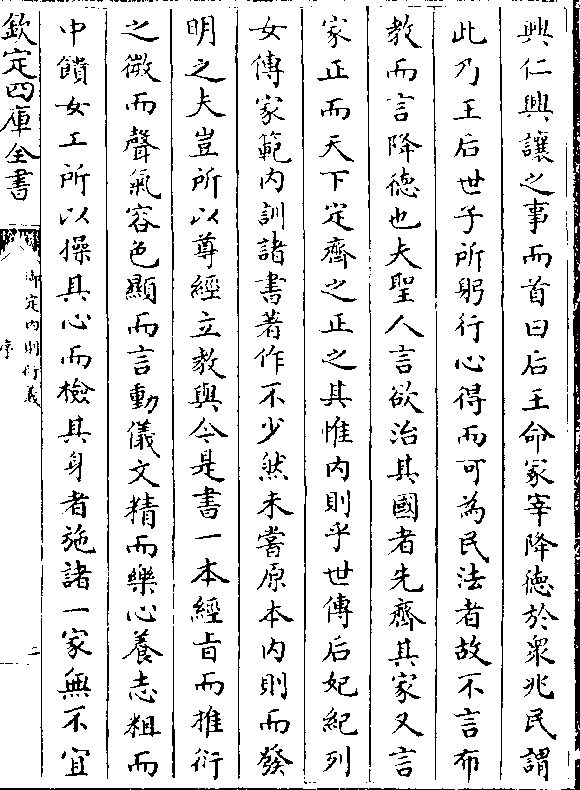 興仁興讓之事而首曰后王命冢宰降德於衆兆民謂
此乃王后世子所躬行心得而可為民法者故不言布
教而言降德也夫聖人言欲治其國者先齊其家又言
家正而天下定齊之正之其惟内則乎世傳后妃紀列
女傳家範内訓諸書著作不少然未嘗原本内則而發
明之夫豈所以尊經立教與今是書一本經旨而推衍
之微而聲氣容色顯而言動儀文精而樂心養志粗而
中饋女工所以操其心而檢其身者施諸一家無不宜
欽定四庫全書
御定内則衍義
序
二